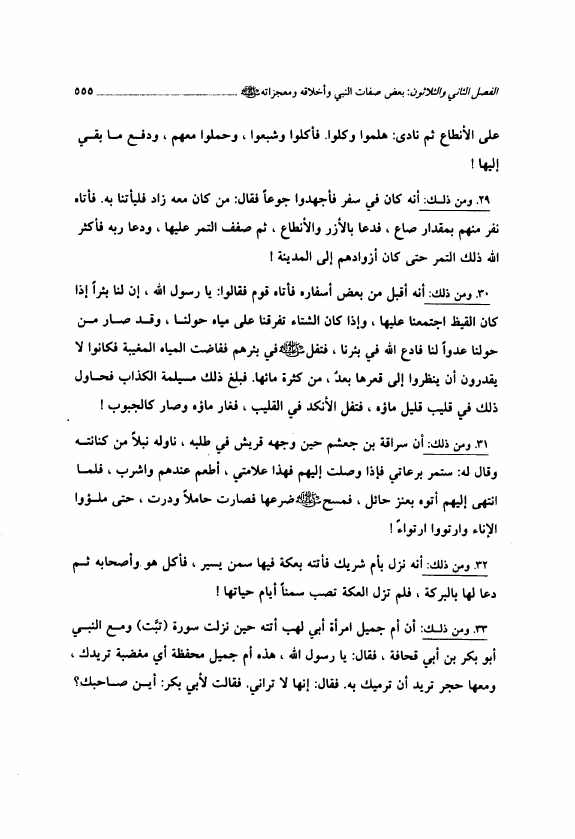 الفصل الثاني والثلاثون: بعض صفات النبي وأخلاقه ومعجزاته ﷺ ـــــــــــــــــ ٥٥٥
على الأنطاع ثم نادى: هلموا وكلوا. فأكلوا وشبعوا ، وحملوا معهم ، ودفـع مـا بقـي
إليها !
٢٩. ومن ذلـك: أنه كان في سفر فأجهدوا جوعاً فقال: من كان معه زاد فليأتنا به. فأتاه
نفر منهم بمقدار صاع ، فدعا بالأزر والأنطاع ، ثم صفف التمر عليها ، ودعا ربه فأكثر
الله ذلك التمر حتى كان أزوادهم إلى المدينة !
٣٠. ومن ذلك: أنه أقبل من بعض أسفاره فأتاه قوم فقالوا: يا رسول الله ، إن لنا بئراً إذا
كان القيظ اجتمعنا عليها ، وإذا كان الشتاء تفرقنا على مياه حولنـا ، وقـد صـار مـن
حولنا عدواً لنا فادع الله في بئرنا ، فتفل ﷺ في بئرهم ففاضت المياه المغيبة فكانوا لا
يقدرون أن ينظروا إلى قعرها بعدُ ، من كثرة مائها. فبلغ ذلك مسيلمة الكذاب فحـاول
ذلك في قليب قليل ماؤه ، فتفل الأنكد في القليب ، فغار ماؤه وصار كالجبوب !
٣١. ومن ذلك: أن سراقة بن جعشم حين وجهه قريش في طلبه ، ناوله نبلاً من كنانتـه
وقال له: ستمر برعاتي فإذا وصلت إليهم فهذا علامتي ، أطعم عندهم واشرب ، فلمـا
انتهى إليهم أتوه بعنز حائل ، فمسح ﷺ ضرعها فصارت حاملاً ودرت ، حتى ملـؤوا
الإناء وارتووا ارتواءً !
٣٢. ومن ذلك: أنه نزل بأم شريك فأتته بعكة فيها سمن يسير ، فأكل هو وأصحابه ثـم
دعا لها بالبركة ، فلم تزل العكة تصب سمناً أيام حياتها !
٣٣. ومن ذلـك: أن أم جميل امرأة أبي لهب أتته حين نزلت سورة (تَبَّت) ومـع النبـي
أبو بكر بن أبي قحافة ، فقال: يا رسول الله ، هذه أم جميل محفظة أي مغضبة تريدك ،
ومعها حجر تريد أن ترميك به. فقال: إنها لا تراني. فقالت لأبي بكر: أيـن صـاحبك؟